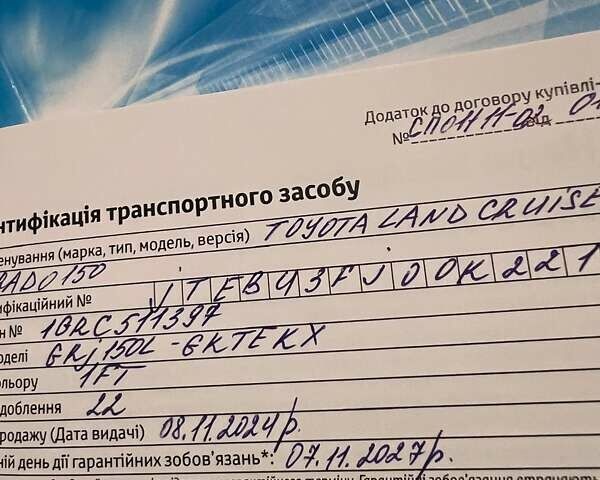 Додаток до договору купівлі-
№ СПО1111-02 від 01
нтифікація транспортного засобу
енування (марка, тип, модель, версія) TOYOTA LAND CRUISE
ADO 150
ифікаційний № JTEBU3FJ00K221
н № 1GRC511397
оделі GRJ150L-GKTEKX
льору 1FT
доблення 22
родажу (Дата видачі) 08.11.2024р.
ній день дії гарантійних зобов'язань*: 07.11.2027р.